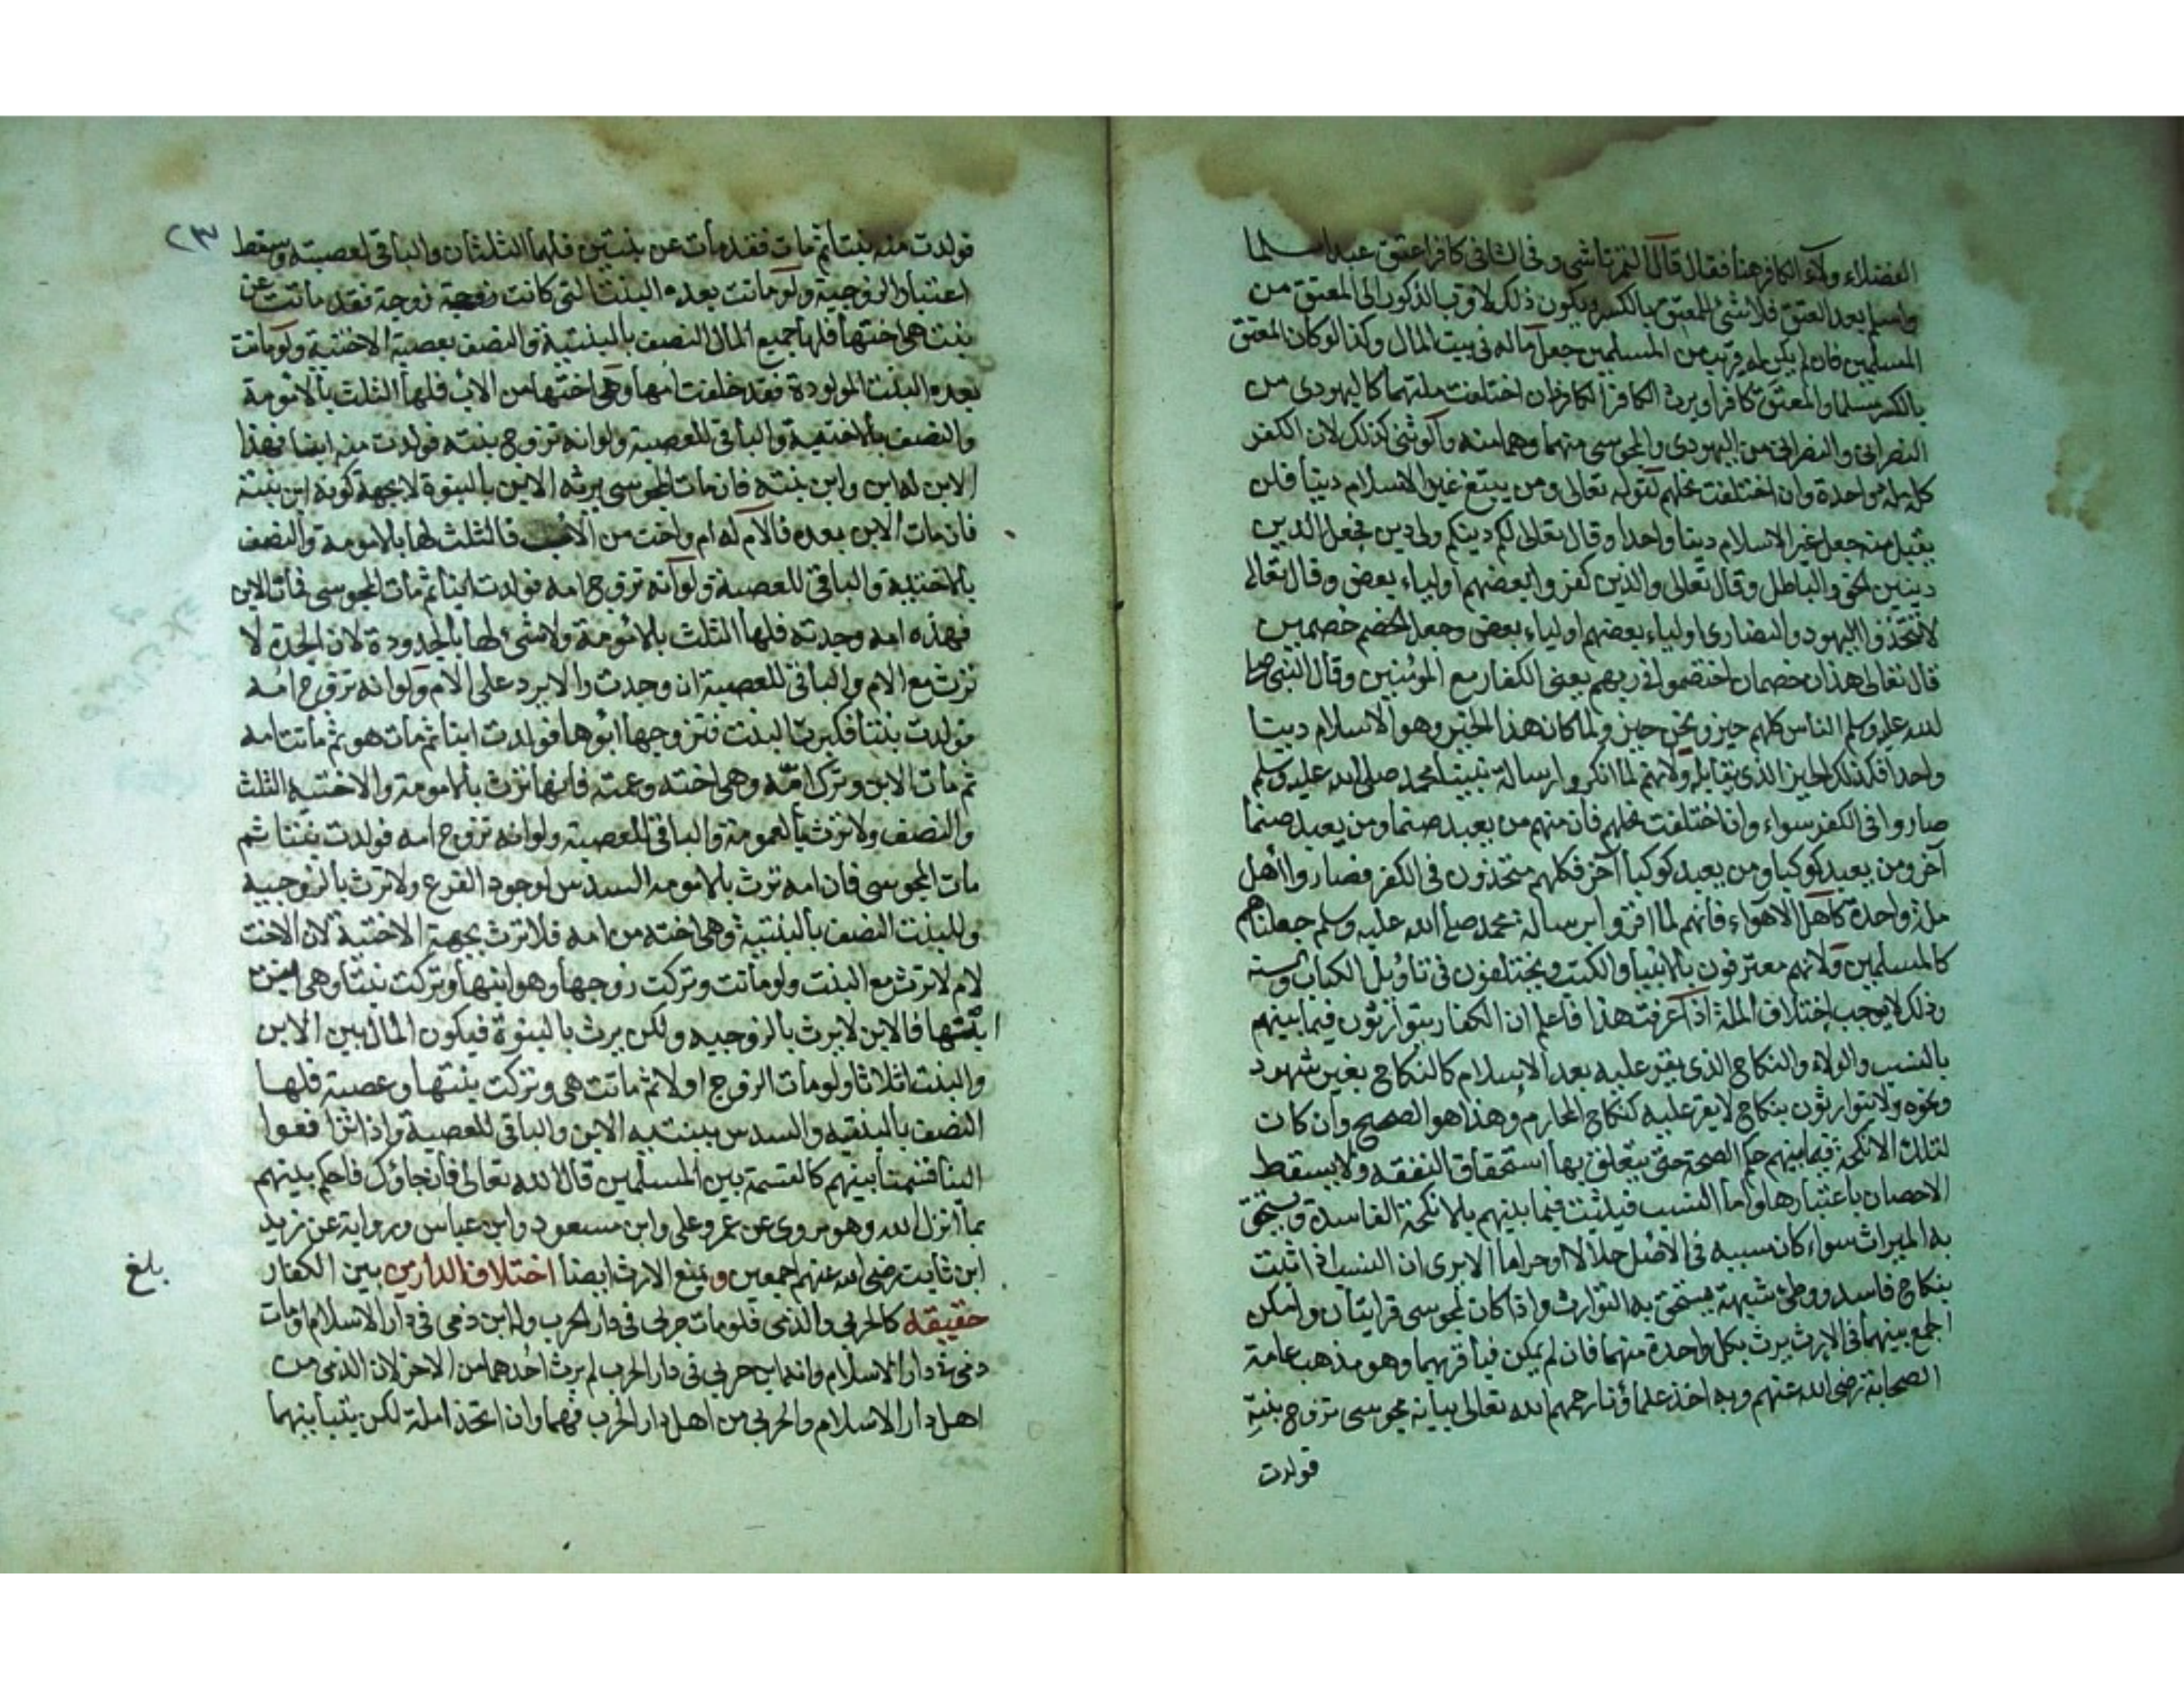 الفضلاء ولاء الكافر هنا فقال قال التمرتاشي وفي الثاني كافر اعتق عبدا مسلما
واسلم بعد العتق فلا شئ للمعتق بالكسر ويكون ذلك لاقرب الذكور الى المعتق من
المسلمين فان لم يكن له قريب من المسلمين جعل ماله في بيت المال وكذا لو كان المعتق
بالكسر مسلما والمعتق كافرا ويرث الكافر الكافر وان اختلفت ملتهما كاليهودي من
النصراني والنصراني من اليهودي والمجوسي منهما وهما منه والوثني كذلك لان الكفر
كله ملة واحدة وان اختلفت نحلهم لقوله تعالى ومن يبتغ غير الاسلام دينا فلن
يقبل منه جعل غير الاسلام دينا واحدا وقال تعالى لكم دينكم ولي دين فجعل الدين
دينين الحق والباطل وقال تعالى والذين كفروا بعضهم اولياء بعض وقال تعالى
لا تتخذوا اليهود والنصارى اولياء بعضهم اولياء بعض وجعل الخصم خصمين
قال تعالى هذان خصمان اختصموا في ربهم يعني الكفار مع المومنين وقال النبي صلى
الله عليه وسلم الناس كلهم حيز ونحن حيز ولما كان هذا الحيز وهو الاسلام دينا
واحدا فكذلك الحيز الذي يقابله ولانهم لما انكروا رسالة نبينا محمد صلى الله عليه وسلم
صاروا في الكفر سواء وان اختلفت نحلهم فان منهم من يعبد صنما ومن يعبد صنما
آخر ومن يعبد كوكبا ومن يعبد كوكبا آخر فكلهم متحذون في الكفر فصاروا اهل
ملة واحدة كاهل الاهواء فانهم لما اقروا برسالة محمد صلى الله عليه وسلم جعلناهم
كالمسلمين ولانهم معترفون بالانبيا والكتب ويختلفون في تاويل الكتاب والسنة
وذلك لا يوجب اختلاف الملة اذا عرفت هذا فاعلم ان الكفار يتوارثون فيما بينهم
بالنسب والولاء والنكاح الذي يقر عليه بعد الاسلام كالنكاح بغير شهود
ونحوه ولا يتوارثون بنكاح لا يقر عليه كنكاح المحارم وهذا هو الصحيح وان كان
لتلك الانكحة فيما بينهم حكم الصحة حتى يتعلق بها استحقاق النفقه ولا يسقط
الاحصان باعتبارها واما النسب فيثبت فيما بينهم بالانكحة الفاسدة ويستحق
به الميراث سواء كان سببه في الاصل حلالا او حراما الا يرى ان النسب اذا ثبت
بنكاح فاسد ووطئ شبهة يستحق به التوارث واذا كان لمجوسي قرابتان وامكن
الجمع بينهما في الارث يرث بكل واحدة منهما فان لم يمكن فباقربهما وهو مذهب عامة
الصحابة رضي الله عنهم وبه اخذ علماؤنا رحمهم الله تعالى بيانه مجوسي تزوج بنته
فولدت
٢٣
فولدت منه بنتا ثم مات فقد مات عن بنتين فلهما الثلثان والباقي لعصبته وسقط
اعتبار الزوجية ولو ماتت بعده البنت التي كانت زوجة فقد ماتت عن
بنت هي اختها فلها جميع المال النصف بالبنتية والنصف بعصبة الاختية ولو ماتت
بعده البنت المولودة فقد خلفت امها وهي اختها من الاب فلها الثلث بالامومة
والنصف بالاختية والباقي للعصبة ولو انه تزوج بنته فولدت منه ابنا فهذا
الابن له ابن وابن بنته فان مات المجوسي يرثه الابن بالبنوة لا بجهة كونه ابن بنته
فان مات الابن بعده فالام له ام واخت من الاب فالثلث لها بالامومة والنصف
بالاختية والباقي للعصبة ولو انه تزوج امه فولدت ابنا ثم مات المجوسي فمات الابن
فهذه امه وجدته فلها الثلث بالامومة ولا شئ لها بالجدودة لان الجدة لا
ترث مع الام والباقي للعصبة ان وجدت والا يرد على الام ولو انه تزوج امه
فولدت بنتا فكبرت البنت فتزوجها ابوها فولدت ابنا ثم مات هو ثم ماتت امه
ثم مات الابن وترك امه وهي اخته وعمته فانها ترث بالامومة والاختيه الثلث
والنصف ولا ترث بالعمومة والباقي للعصبة ولو انه تزوج امه فولدت بنتا ثم
مات المجوسي فان امه ترث بالامومه السدس لوجود الفرع ولا ترث بالزوجيه
وللبنت النصف بالبنتية وهي اخته من امه فلا ترث بجهة الاختية لان الاخت
لام لا ترث مع البنت ولو ماتت وتركت زوجها وهو ابنها وتركت بنتا وهي ابنت
ابنها فالابن لا يرث بالزوجيه ولكن يرث بالبنوة فيكون المال بين الابن
والبنت اثلاثا ولو مات الزوج اولا ثم ماتت هي وتركت بنتها وعصبة فلها
النصف بالبنتيه والسدس ببنتيه الابن والباقي للعصبة واذا ترافعوا
الينا قسمنا بينهم كالقسمة بين المسلمين قال الله تعالى فان جاؤك فاحكم بينهم
بما انزل الله وهو مروي عن عمر وعلي وابن مسعود وابن عباس ورواية عن زيد
ابن ثابت رضي الله عنهم اجمعين ويمنع الارث ايضا اختلاف الدارين بين الكفار
بلغ
حقيقه كالحربي والذمي فلو مات حربي في دار الحرب وله ابن ذمي في دار الاسلام او مات
ذمي في دار الاسلام وله ابن حربي في دار الحرب لم يرث احدهما من الاخر لان الذمي من
اهل دار الاسلام والحربي من اهل دار الحرب فهما وان اتحدا ملة لكن بتباينهما